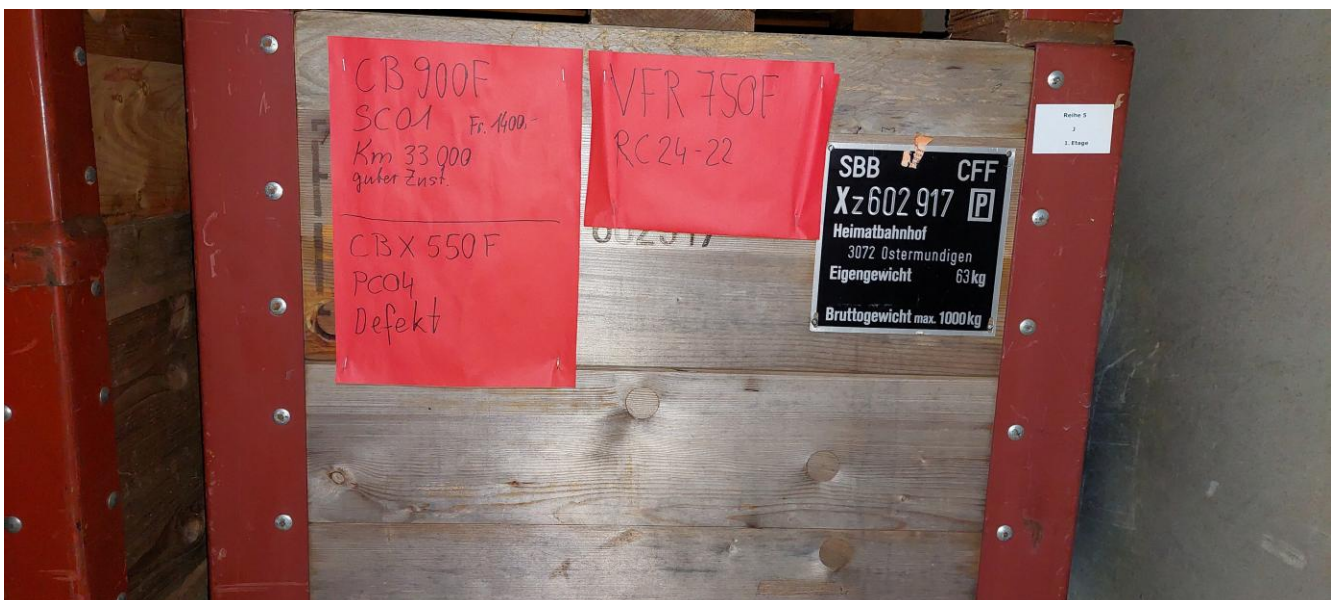 CB 900F
SC01 Fr. 1400.-
Km 33 000
guter Zust.
CBX 550F
PC04
Defekt
VFR 750F
RC24-22
SBB CFF
Xz 602 917 P
Heimatbahnhof
3072 Ostermundigen
Eigengewicht 63 kg
Bruttogewicht max. 1000 kg
Reihe 5
2
1. Etage